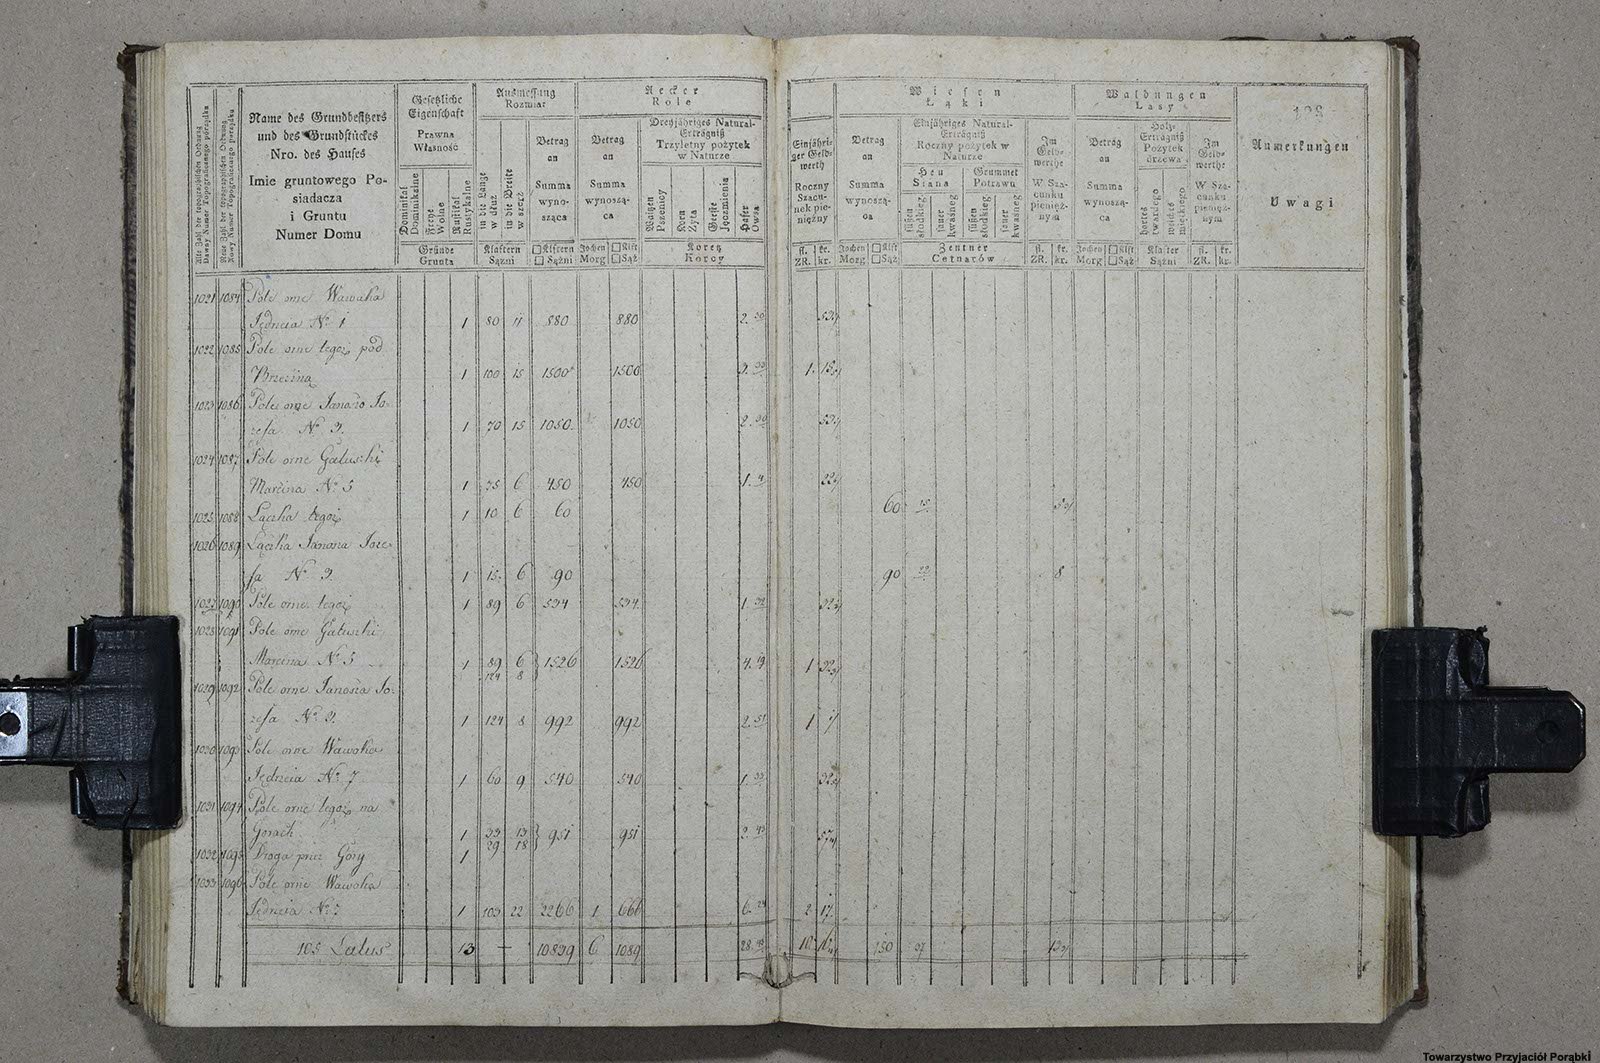 Alte Zahl der topographischen Ordnung
Dawny Numer Topograficznego porządku
Neue Zahl der topographischen Ordnung
Nowy Numer Topograficznego porządku
Name des Grundbesitzers
und des Grundstückes
Nro. des Hauses
Imie gruntowego Po-
siadacza
i Gruntu
Numer Domu
Gesetzliche
Eigenschaft
Prawna
Własność
Dominikal
Dominikalne
Freye
Wolne
Rustikal
Rustykalne
Gründe
Grunta
Ausmessung
Rozmiar
in die Länge
w dłuż
in die Breite
w szerz
Klaftern
Sążni
Betrag
an
Summa
wyno-
sząca
□ Klftern
□ Sążni
Aecker
Role
Betrag
an
Summa
wynoszą-
ca
Jochen
Morg
□ Klft
□ Sąż
Dreyjähriges Natural-
Erträgniß
Trzyletny pożytek
w Naturze
Waitzen
Pszenicy
Korn
Żyta
Gerste
Jęczmienia
Hafer
Owsa
Koretz
Korcy
Einjähri-
ger Geld-
werth
Roczny
Szacu-
nek pie-
niężny
fl. kr.
ZR. kr.
Wiesen
Łąki
Betrag
an
Summa
wynoszą-
ca
Jochen
Morg
□ Klft
□ Sąż
Einjähriges Natural-
Erträgniß
Roczny pożytek w
Naturze
Heu
Siana
Grummet
Potrawu
süßen
słodkieg
sauer
kwaśneg
süßen
słodkieg
sauer
kwaśneg
Zentner
Cetnarów
Im
Geld-
werthe
W Sza-
cunku
pienięż-
nym
fl. kr.
ZR. kr.
Waldungen
Lasy
Betrag
an
Summa
wynoszą-
ca
Jochen
Morg
□ Klft
□ Sąż
Holz-
Erträgniß
Pożytek
drzewa
hartes
twardego
weiches
miękiego
Klafter
Sążni
Im
Geld-
werthe
W Sza-
cunku
pienięż-
nym
fl. kr.
ZR. kr.
Anmerkungen
Uwagi
1021 1084 Pole orne Wawaka
Jędrzeia No 1 1 80 11 880 880 2. 30 53
1022 1085 Pole orne tegoż pod
Brzezina 1 100 15 1500 1500 1.
1023 1086 Pole orne
No 3. 1 70 15 1050. 1050 2. 30 53
1024 1087 Pole orne Gałuszki
Marcina No 5 1 75 6 450 450 1. 22
1025 1088 Łączka tegoż 1 10 6 60 60 15
1026 1089 Łączka Janoszа Joze-
fa No 3. 1 15. 6 90 90 22 8
1027 1090 Pole orne tegoż 1 89 6 534 534. 1. 32 32
1028 1091 Pole orne Gałuszki
Marcina No 5 1 89 6 1526 1526 4. 19 1 32
124 8
1029 1092 Pole orne Janosza Jo-
zefa No 3. 1 124 8 992 992 2. 51 1
1030 1093 Pole orne Wawaka
Jędrzeia No 7 1 60 9 540 540 1. 33 32
1031 1094 Pole orne tegoż na
Gorach 1 33 13 951 951 2. 43 57
29 18
1032 1095 Droga przez Gory 1
1033 1096 Pole orne Wawaka
Jędrzeia No 1 103 22 2266 1 666 6. 2 17
105 Latus 13 10839 6 1089 28. 10. 150 37 13
Towarzystwo Przyjaciół Porąbki